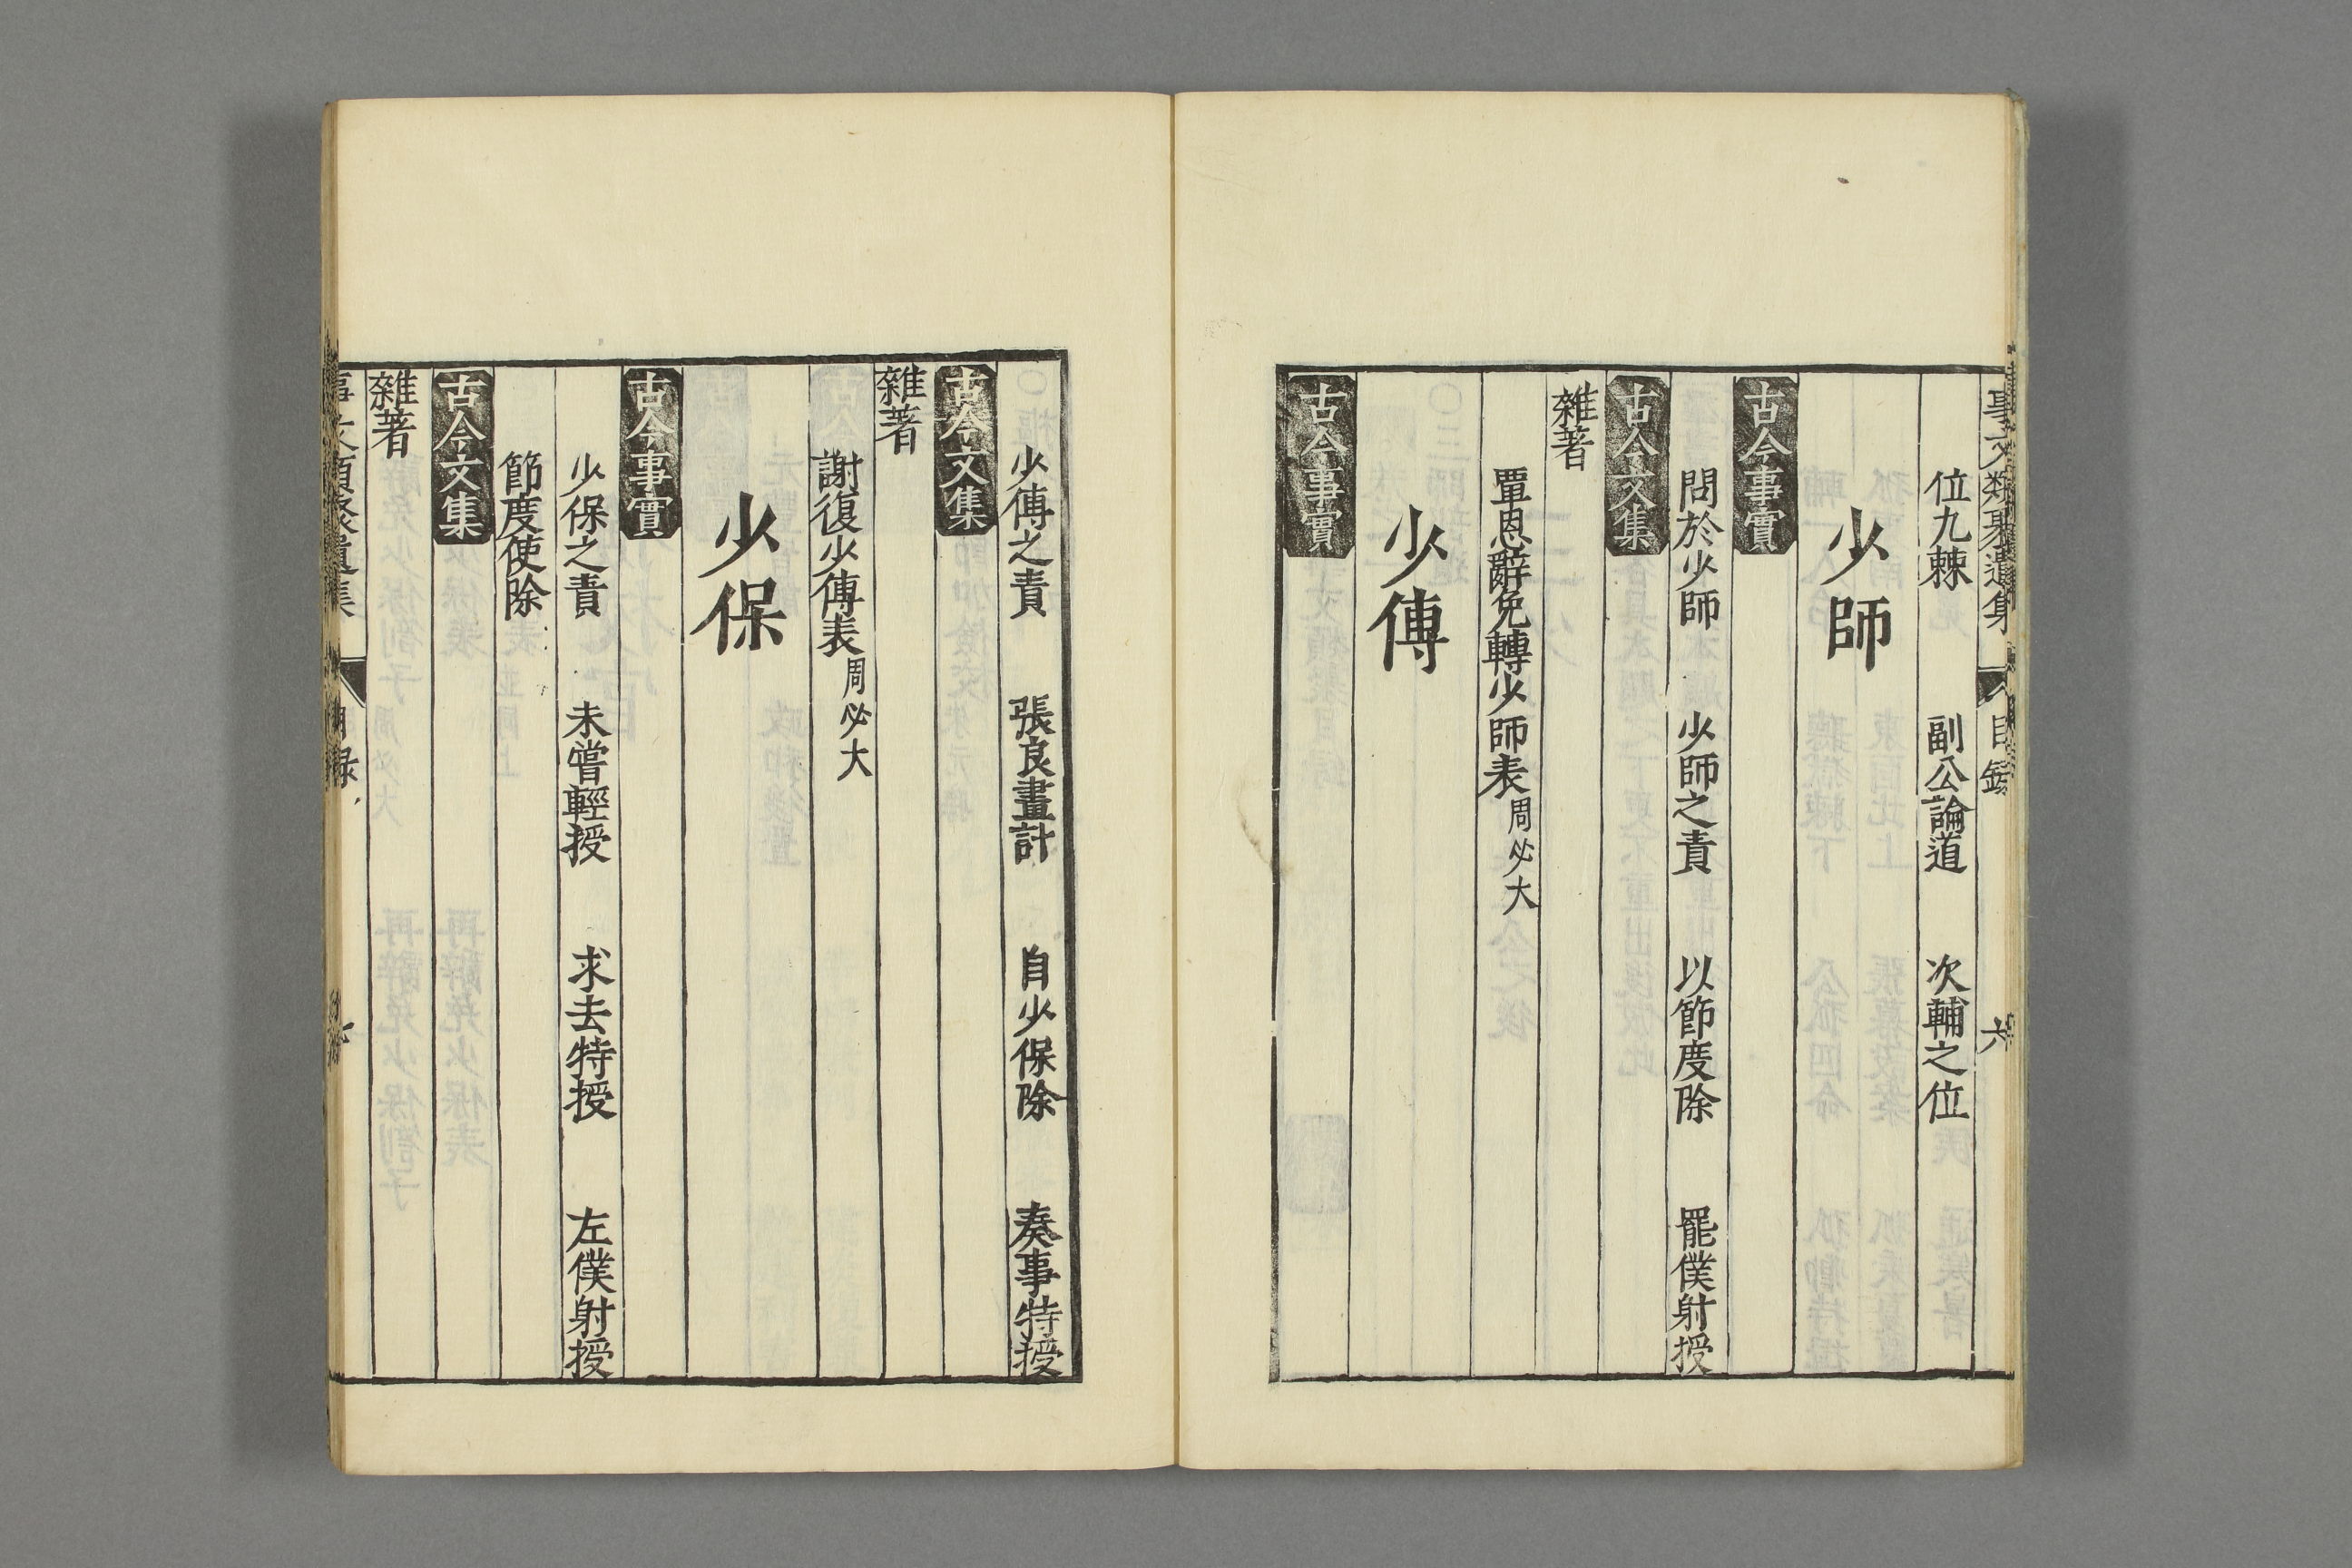 事文類聚遺集 目錄 六
位九棘 副公論道 次輔之位
少師
古今事實
問於少師 少師之責 以節度除 罷僕射授
古今文集
雜著
覃恩辭免轉少師表周必大
少傅
古今事實
少傅之責 張良畫計 自少保除 奏事特授
古今文集
雜著
謝復少傅表周必大
少保
古今事實
少保之責 未嘗輕授 求去特授 左僕射授
節度使除
古今文集
雜著
事文類聚遺集 目録 七